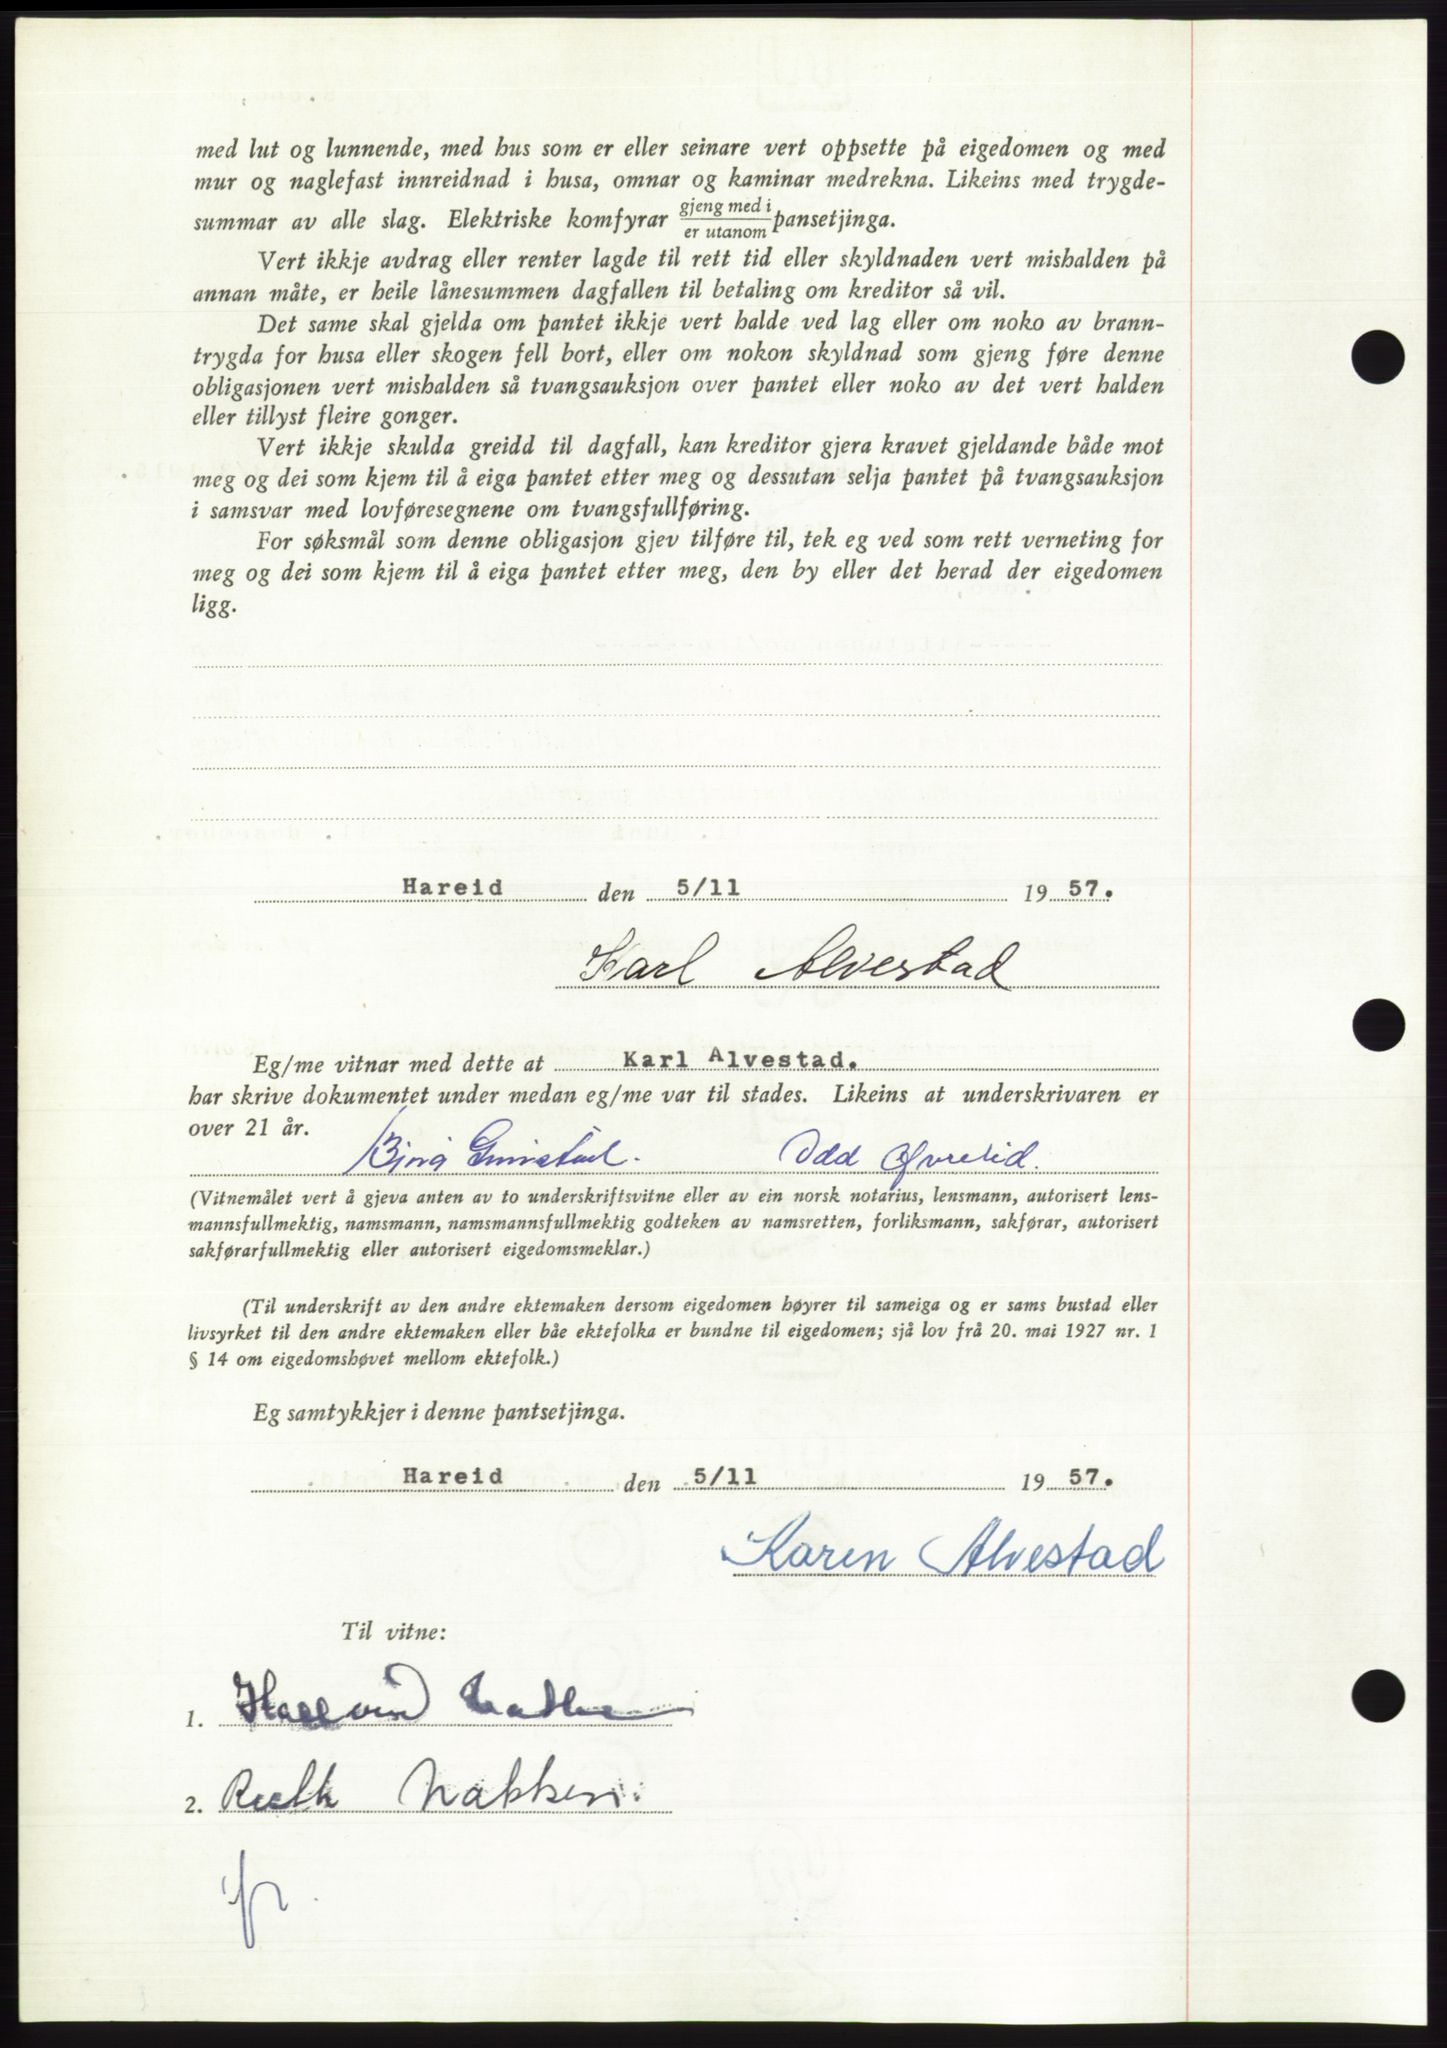 med lut og lunnende, med hus som er eller seinare vert oppsette på eigedomen og med
mur og naglefast innreidnad i husa, omnar og kaminar medrekna. Likeins med trygde-
summar av alle slag. Elektriske komfyrar gjeng med i / er utanom pansetjinga.
Vert ikkje avdrag eller renter lagde til rett tid eller skyldnaden vert mishalden på
annan måte, er heile lånesummen dagfallen til betaling om kreditor så vil.
Det same skal gjelda om pantet ikkje vert halde ved lag eller om noko av brann-
trygda for husa eller skogen fell bort, eller om nokon skyldnad som gjeng føre denne
obligasjonen vert mishalden så tvangsauksjon over pantet eller noko av det vert halden
eller tillyst fleire gonger.
Vert ikkje skulda greidd til dagfall, kan kreditor gjera kravet gjeldande både mot
meg og dei som kjem til å eiga pantet etter meg og dessutan selja pantet på tvangsauksjon
i samsvar med lovføresegnene om tvangsfullføring.
For søksmål som denne obligasjon gjev tilføre til, tek eg ved som rett verneting for
meg og dei som kjem til å eiga pantet etter meg, den by eller det herad der eigedomen
ligg.
Hareid den 5/11 19 57.
Karl Alvestad
Eg/me vitnar med dette at Karl Alvestad.
har skrive dokumentet under medan eg/me var til stades. Likeins at underskrivaren er
over 21 år.
Odd
(Vitnemålet vert å gjeva anten av to underskriftsvitne eller av ein norsk notarius, lensmann, autorisert lens-
mannsfullmektig, namsmann, namsmannsfullmektig godteken av namsretten, forliksmann, sakførar, autorisert
sakførarfullmektig eller autorisert eigedomsmeklar.)
(Til underskrift av den andre ektemaken dersom eigedomen høyrer til sameiga og er sams bustad eller
livsyrket til den andre ektemaken eller båe ektefolka er bundne til eigedomen; sjå lov frå 20. mai 1927 nr. 1
§ 14 om eigedomshøvet mellom ektefolk.)
Eg samtykkjer i denne pantsetjinga.
Hareid den 5/11 19 57.
Karen Alvestad
Til vitne:
1. Hallvard
2. Ruth Nakken.